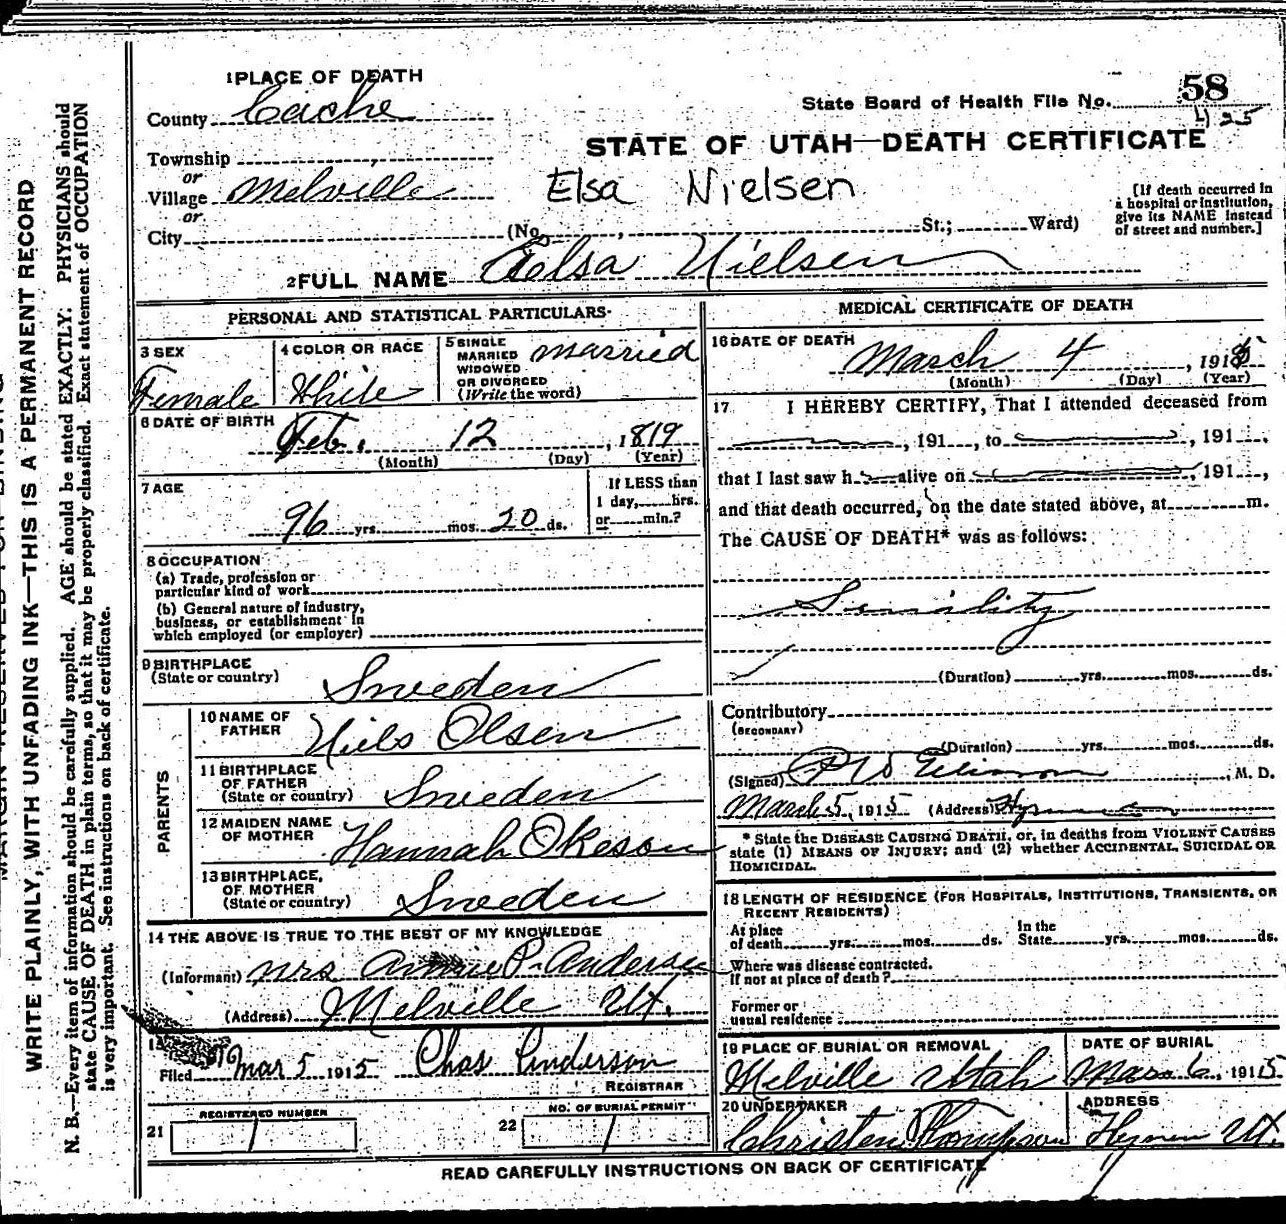 1 PLACE OF DEATH
County Cache
State Board of Health File No. 58
425
STATE OF UTAH—DEATH CERTIFICATE
Township
or
Village Melville
or
City
Elsa Nielsen
(No. , St.; Ward)
[If death occurred in
a hospital or institution,
give its NAME instead
of street and number.]
2 FULL NAME Elsa Nielsen
PERSONAL AND STATISTICAL PARTICULARS
3 SEX
Female
4 COLOR OR RACE
White
5 SINGLE
MARRIED
WIDOWED
OR DIVORCED
(Write the word)
married
6 DATE OF BIRTH
Feb. 12, 1819
(Month) (Day) (Year)
7 AGE
96 yrs. mos. 20 ds.
If LESS than
1 day, hrs.
or min.?
8 OCCUPATION
(a) Trade, profession or
particular kind of work
(b) General nature of industry,
business, or establishment in
which employed (or employer)
9 BIRTHPLACE
(State or country)
Sweden
PARENTS
10 NAME OF
FATHER
Niels Olsen
11 BIRTHPLACE
OF FATHER
(State or country)
Sweden
12 MAIDEN NAME
OF MOTHER
Hannah Okeson
13 BIRTHPLACE,
OF MOTHER
(State or country)
Sweden
14 THE ABOVE IS TRUE TO THE BEST OF MY KNOWLEDGE
(Informant) Mrs Annie P. Andersen
(Address) Melville Ut.
Filed Mar 5 1915 Chas Anderson
REGISTRAR
21 REGISTERED NUMBER 1
22 NO. OF BURIAL PERMIT 1
MEDICAL CERTIFICATE OF DEATH
16 DATE OF DEATH
March 4, 1915
(Month) (Day) (Year)
17 I HEREBY CERTIFY, That I attended deceased from
, 191 , to , 191 ,
that I last saw h alive on , 191 ,
and that death occurred, on the date stated above, at m.
The CAUSE OF DEATH* was as follows:
Senility
(Duration) yrs. mos. ds.
Contributory
(SECONDARY)
(Duration) yrs. mos. ds.
(Signed) , M. D.
March 5, 1915 (Address)
* State the DISEASE CAUSING DEATH, or, in deaths from VIOLENT CAUSES
state (1) MEANS OF INJURY; and (2) whether ACCIDENTAL, SUICIDAL OR
HOMICIDAL.
18 LENGTH OF RESIDENCE (FOR HOSPITALS, INSTITUTIONS, TRANSIENTS, OR
RECENT RESIDENTS)
At place
of death yrs. mos. ds.
In the
State yrs. mos. ds.
Where was disease contracted.
If not at place of death?
Former or
usual residence
19 PLACE OF BURIAL OR REMOVAL
Melville Utah
DATE OF BURIAL
Mar. 6, 1915.
20 UNDERTAKER
Christen Thompson
ADDRESS
Hyrum Ut.
READ CAREFULLY INSTRUCTIONS ON BACK OF CERTIFICATE
WRITE PLAINLY, WITH UNFADING INK—THIS IS A PERMANENT RECORD
N. B.—Every item of information should be carefully supplied. AGE should be stated EXACTLY. PHYSICIANS should
state CAUSE OF DEATH in plain terms, so that it may be properly classified. Exact statement of OCCUPATION
is very important. See instructions on back of certificate.